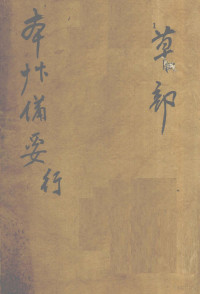 草部
本艸備要行